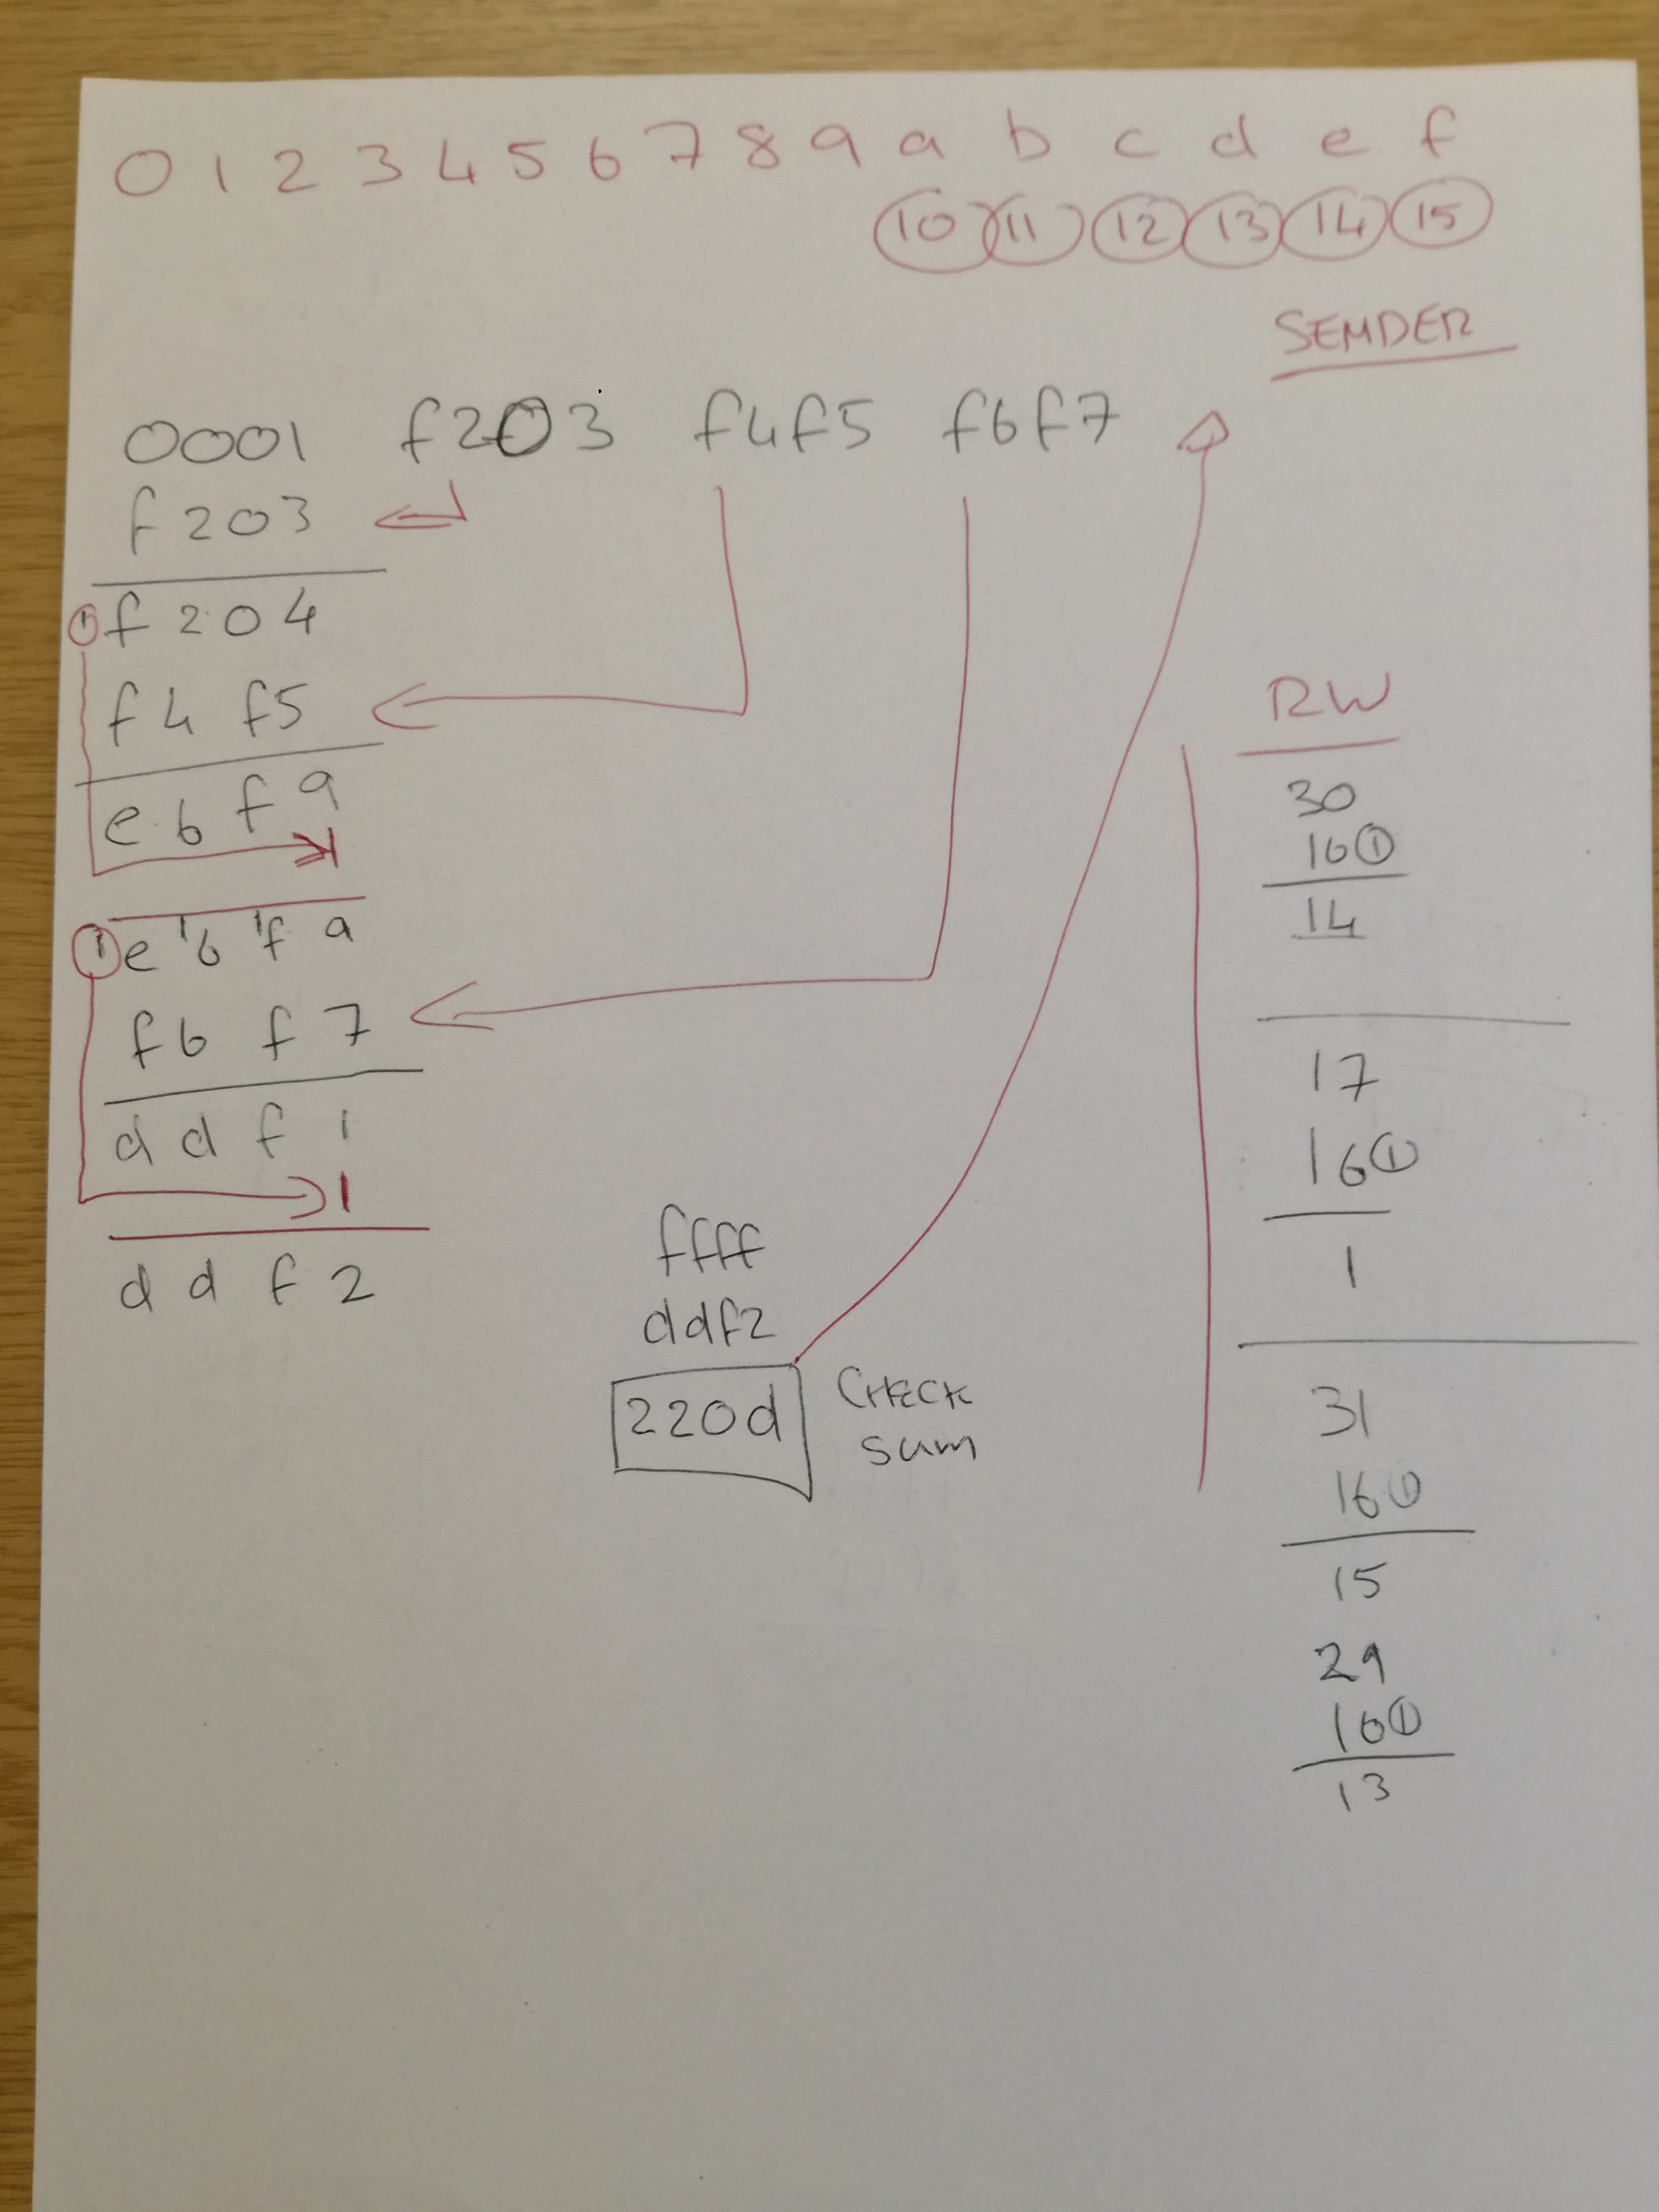 0 1 2 3 4 5 6 7 8 9 a b c d e f
10 11 12 13 14 15
SENDER
0001 f203 f4f5 f6f7
f203
1 f204
f4 f5
e6f9
1
1 e 1 6 1 f a
f6 f7
ddf1
1
ddf2
ffff
ddf2
220d
CHECK
sum
RW
30
16 1
14
17
16 1
1
31
16 1
15
29
16 1
13